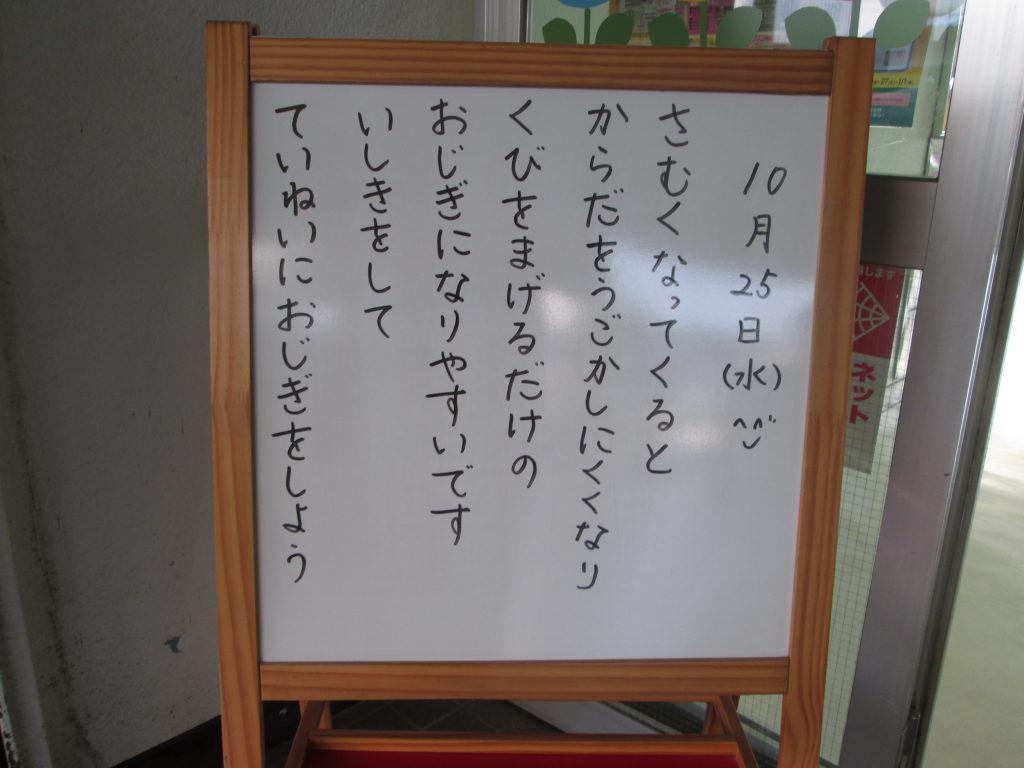 10月25日(水)^^
さむくなってくると
からだをうごかしにくくなり
くびをまげるだけの
おじぎになりやすいです
いしきをして
ていねいにおじぎをしよう
ネット